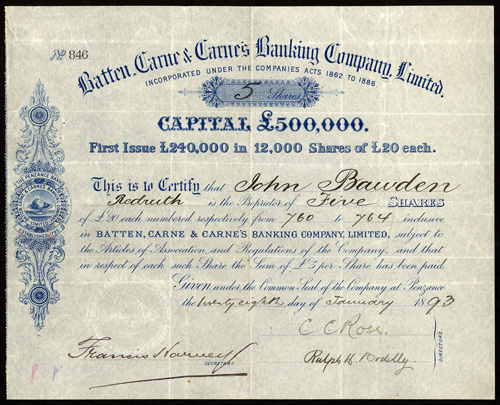 No 846
Batten, Carne & Carne's Banking Company, Limited.
INCORPORATED UNDER THE COMPANIES ACTS 1862 TO 1886
5 Shares
CAPITAL £500,000.
First Issue £240,000 in 12,000 Shares of £20 each.
This is to Certify that John Bawden
Redruth is the Proprietor of Five SHARES
of £20 each numbered respectively from 760 to 764 inclusive
in BATTEN, CARNE & CARNE'S BANKING COMPANY, LIMITED, subject to
the Articles of Association, and Regulations of the Company, and that
in respect of each such Share the Sum of £5 per Share has been paid.
Given under the Common Seal of the Company at Penzance
the twenty eighth day of January 1893
C C Ross.
Francis Harvey
SECRETARY.
Ralph H. Bodilly
DIRECTORS.
P P